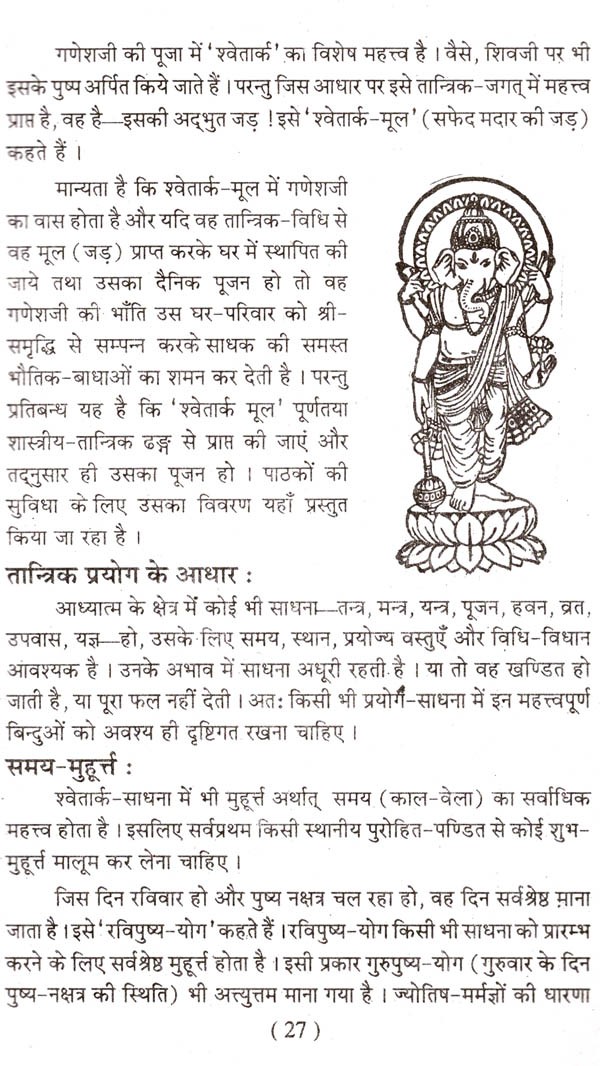 गणेशजी की पूजा में 'श्वेतार्क' का विशेष महत्त्व है । वैसे, शिवजी पर भी
इसके पुष्प अर्पित किये जाते हैं । परन्तु जिस आधार पर इसे तान्त्रिक-जगत् में महत्त्व
प्राप्त है, वह है—इसकी अद्भुत जड़ ! इसे 'श्वेतार्क-मूल' (सफेद मदार की जड़)
कहते हैं ।
मान्यता है कि श्वेतार्क-मूल में गणेशजी
का वास होता है और यदि वह तान्त्रिक-विधि से
वह मूल (जड़) प्राप्त करके घर में स्थापित की
जाये तथा उसका दैनिक पूजन हो तो वह
गणेशजी की भाँति उस घर-परिवार को श्री-
समृद्धि से सम्पन्न करके साधक की समस्त
भौतिक-बाधाओं का शमन कर देती है । परन्तु
प्रतिबन्ध यह है कि 'श्वेतार्क मूल' पूर्णतया
शास्त्रीय-तान्त्रिक ढङ्ग से प्राप्त की जाएं और
तद्नुसार ही उसका पूजन हो । पाठकों की
सुविधा के लिए उसका विवरण यहाँ प्रस्तुत
किया जा रहा है ।
तान्त्रिक प्रयोग के आधार :
आध्यात्म के क्षेत्र में कोई भी साधना—तन्त्र, मन्त्र, यन्त्र, पूजन, हवन, व्रत,
उपवास, यज्ञ—हो, उसके लिए समय, स्थान, प्रयोज्य वस्तुएँ और विधि-विधान
आवश्यक है । उनके अभाव में साधना अधूरी रहती है । या तो वह खण्डित हो
जाती है, या पूरा फल नहीं देती । अत: किसी भी प्रयोग-साधना में इन महत्त्वपूर्ण
बिन्दुओं को अवश्य ही दृष्टिगत रखना चाहिए ।
समय-मुहूर्त्त :
श्वेतार्क-साधना में भी मुहूर्त्त अर्थात् समय (काल-वेला) का सर्वाधिक
महत्त्व होता है । इसलिए सर्वप्रथम किसी स्थानीय पुरोहित-पण्डित से कोई शुभ-
मुहूर्त्त मालूम कर लेना चाहिए ।
जिस दिन रविवार हो और पुष्य नक्षत्र चल रहा हो, वह दिन सर्वश्रेष्ठ माना
जाता है । इसे 'रविपुष्य-योग' कहते हैं । रविपुष्य-योग किसी भी साधना को प्रारम्भ
करने के लिए सर्वश्रेष्ठ मुहूर्त्त होता है । इसी प्रकार गुरुपुष्य-योग (गुरुवार के दिन
पुष्य-नक्षत्र की स्थिति) भी अत्त्युत्तम माना गया है । ज्योतिष-मर्मज्ञों की धारणा
( 27 )